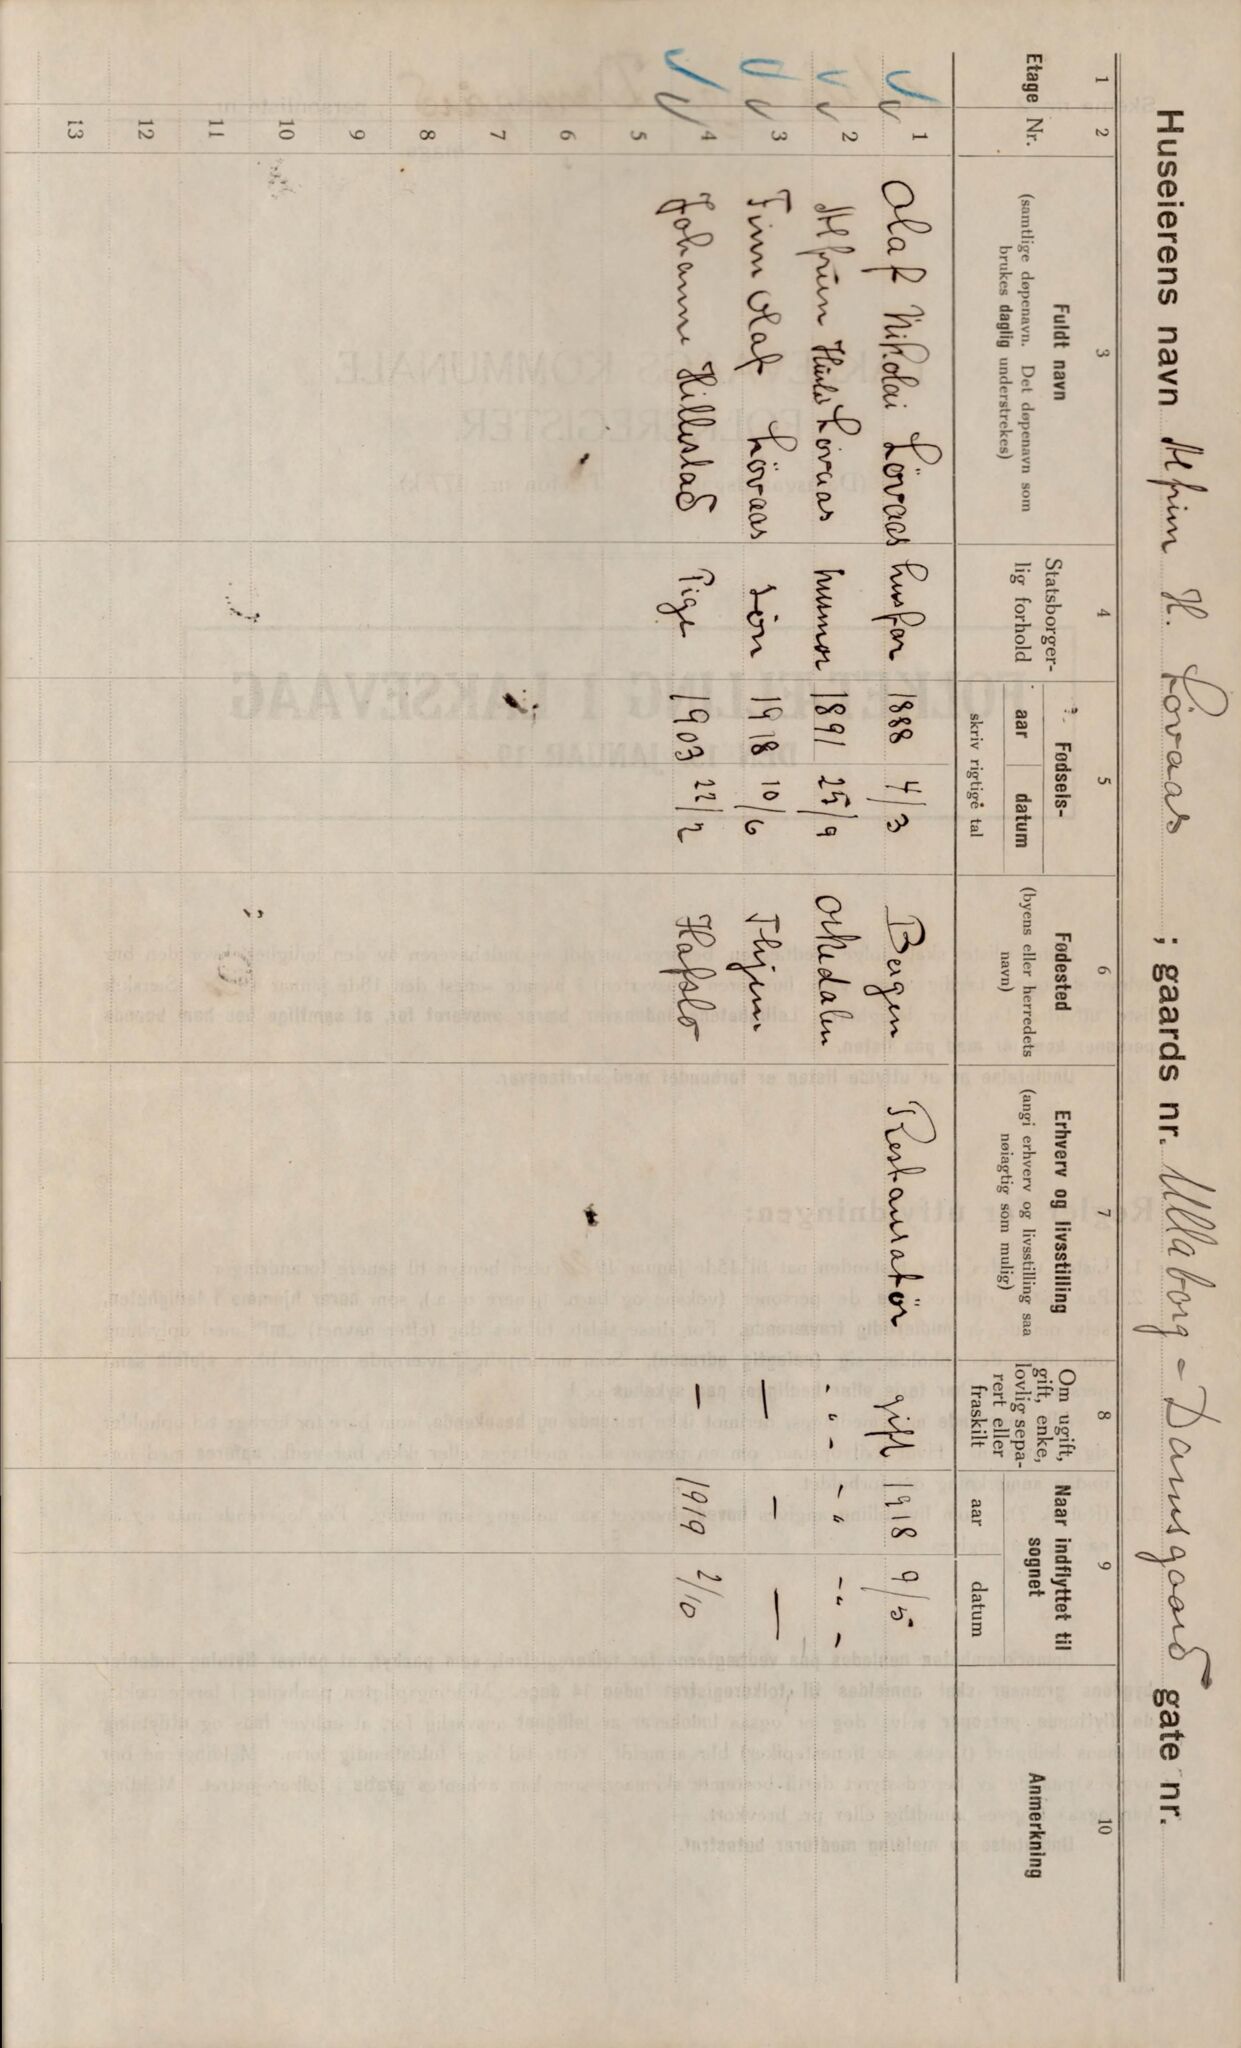 Huseierens navn Alfrim H. Lövaas ; gaards nr. Ullaborg - Damsgaard gate nr.
1 2 3 4 5 6 7 8 9 10
Etage Nr. Fuldt navn (samtlige døpenavn. Det døpenavn som brukes daglig understrekes) Statsborgerlig forhold Fødsels- aar datum skriv rigtige tal Fødested (byens eller herredets navn) Erhverv og livsstilling (angi erhverv og livsstilling saa nøiagtig som mulig) Om ugift, gift, enke, lovlig separert eller fraskilt Naar indflyttet til sognet aar datum Anmerkning
1 Olaf Nikolai Lövaas husfar 1888 4/3 Bergen Restauratör gift 1918 9/5
2 Lövaas husmor 1891 25/9 Orkedalen - " - - " - - " -
3 Finn Olaf Lövaas sön 1918 10/6 — — —
4 Johanne Hillestad Pige 1903 22/2 Hafslo — 1919 2/10
5
6
7
8
9
10
11
12
13